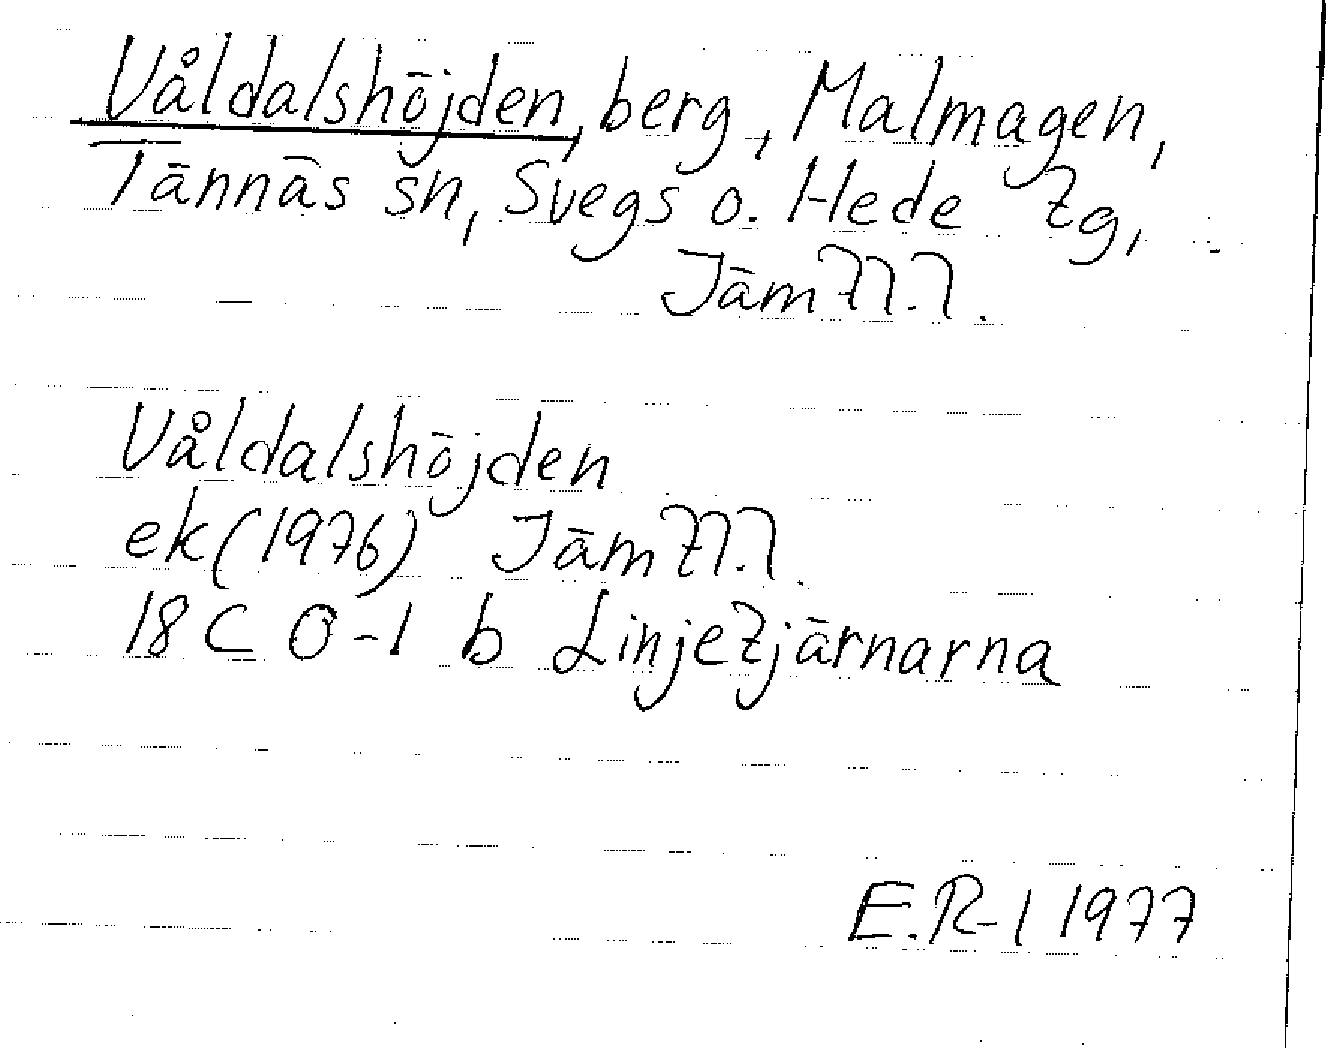 Våldalshöjden, berg, Malmagen,
Tännäs sn, Svegs o. Hede tg,
Jämtl.l.
Våldalshöjden
ek (1976) Jämtl.l.
18 C 0-1 b Linjetjärnarna
E.R-l 1977